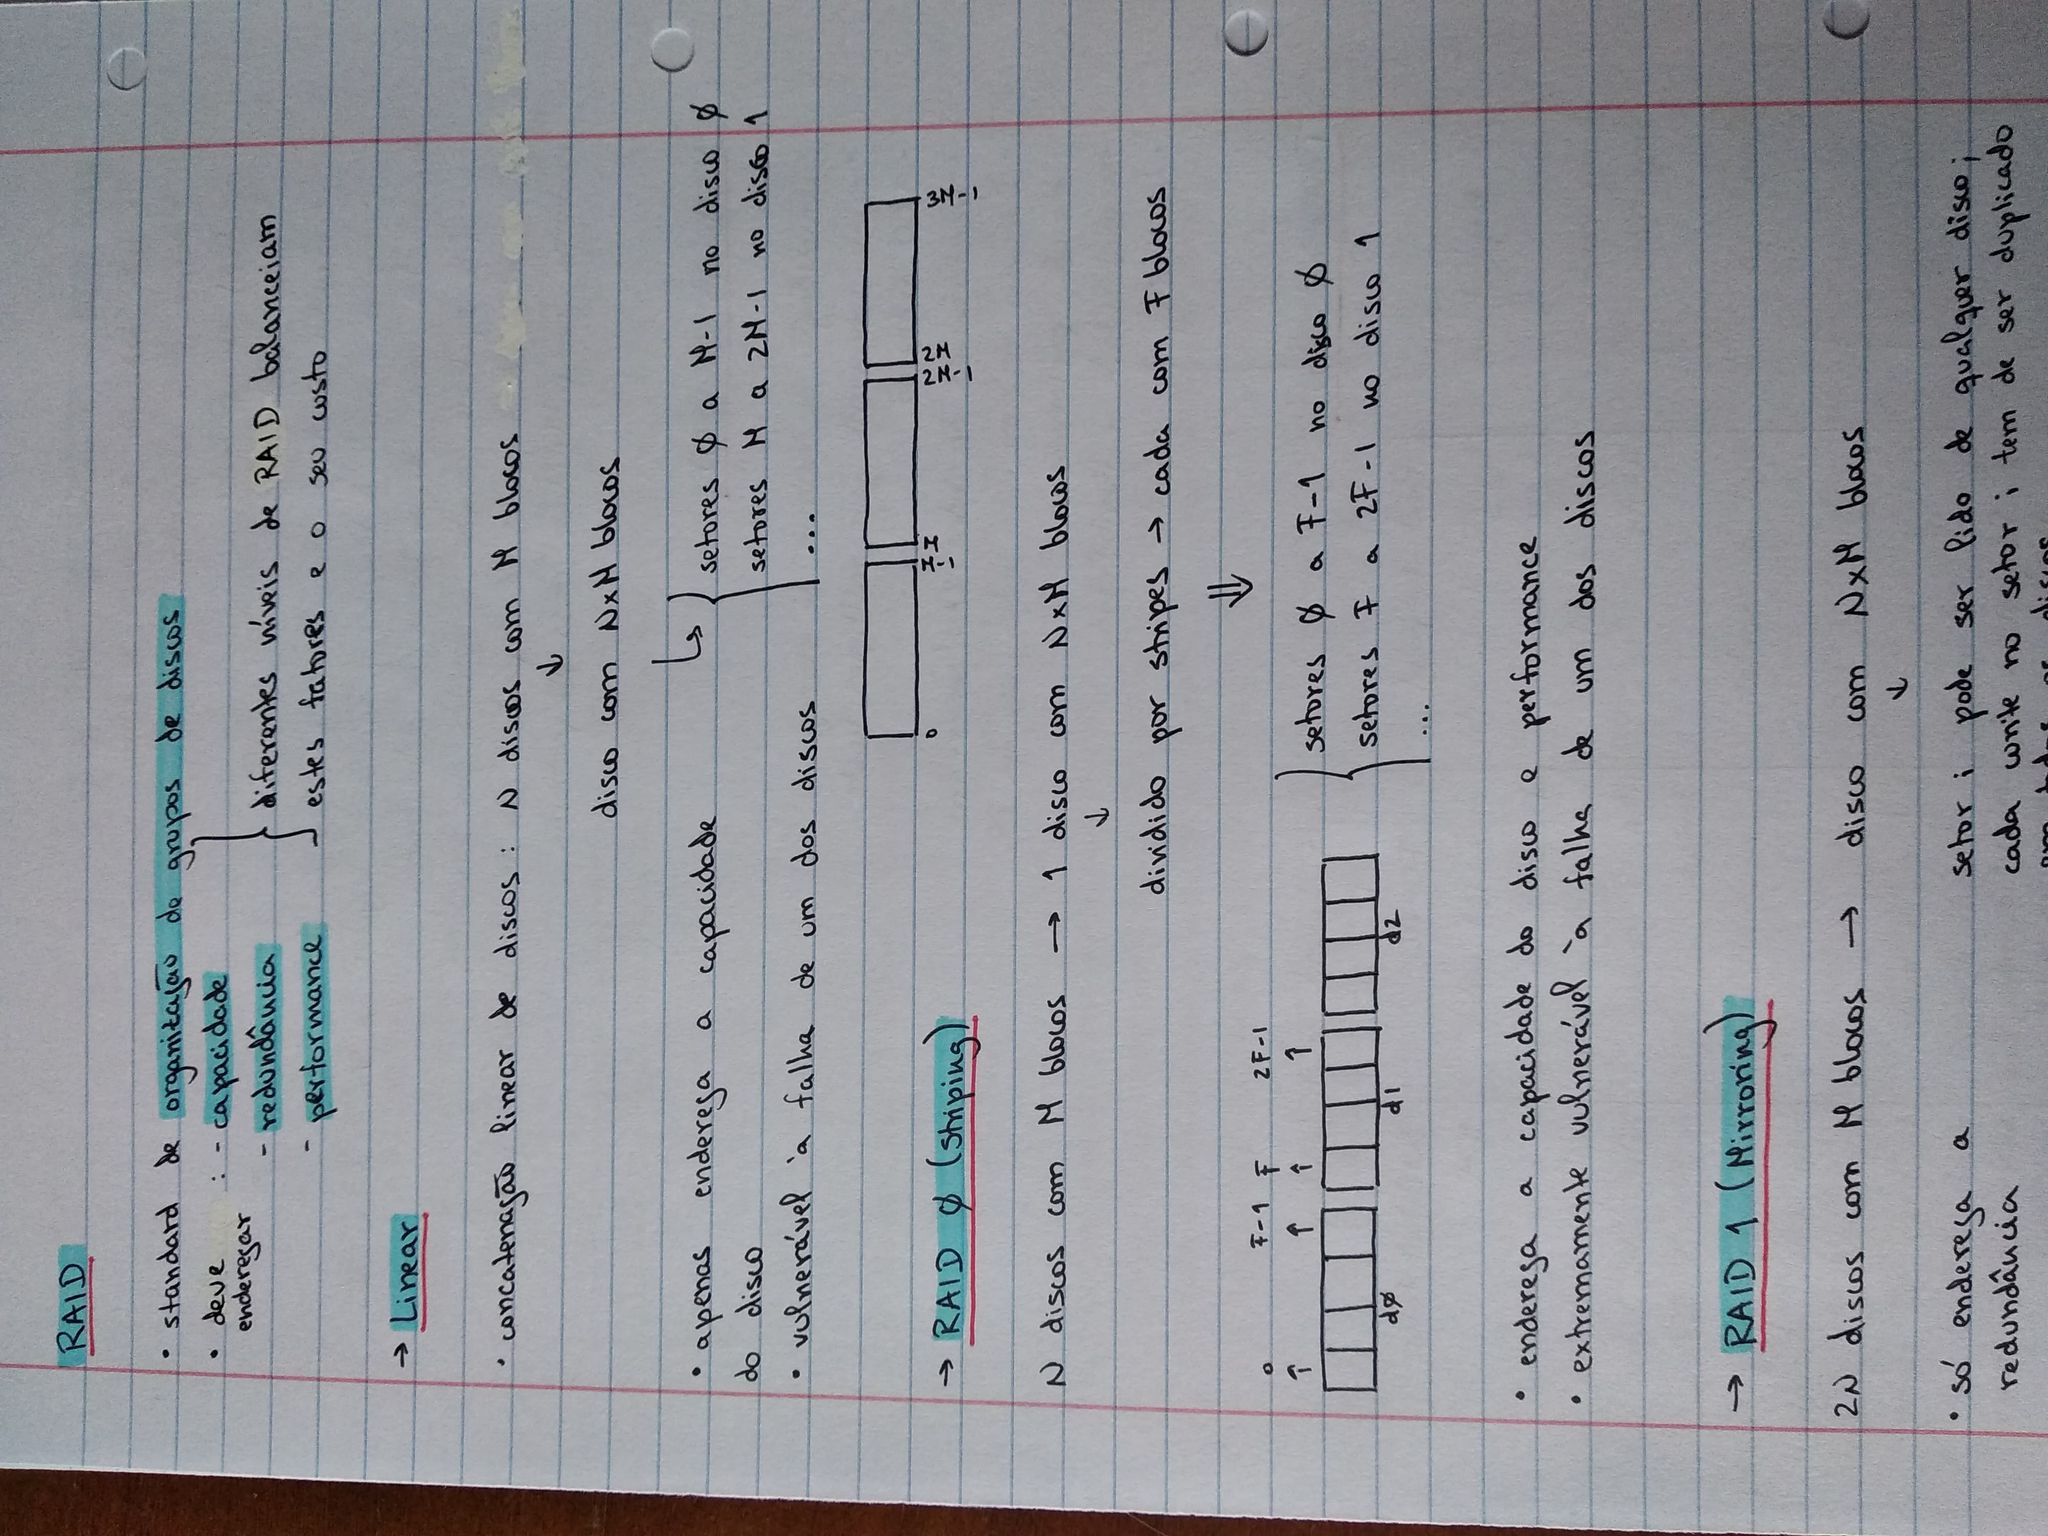 RAID
• standard de organização de grupos de discos
• deve endereçar : - capacidade
- redundância
- performance
diferentes níveis de RAID balanceiam
estes fatores e o seu custo
→ Linear
• concatenação linear de discos : N discos com M blocos
↓
disco com N×M blocos
• apenas endereça a capacidade
do disco
• vulnerável à falha de um dos discos
setores ∅ a M-1 no disco ∅
setores M a 2M-1 no disco 1
...
0 M-1 M 2M-1 2M 3M-1
→ RAID ∅ (Striping)
N discos com M blocos → 1 disco com N×M blocos
↓
dividido por stripes → cada com F blocos
⇓
0 F-1 F 2F-1
d∅ d1 d2
setores ∅ a F-1 no disco ∅
setores F a 2F-1 no disco 1
...
• endereça a capacidade do disco e performance
• extremamente vulnerável à falha de um dos discos
→ RAID 1 (Mirroring)
2N discos com M blocos → disco com N×M blocos
↓
• só endereça a
redundância
setor i pode ser lido de qualquer disco;
cada write no setor i tem de ser duplicado
em todos os discos